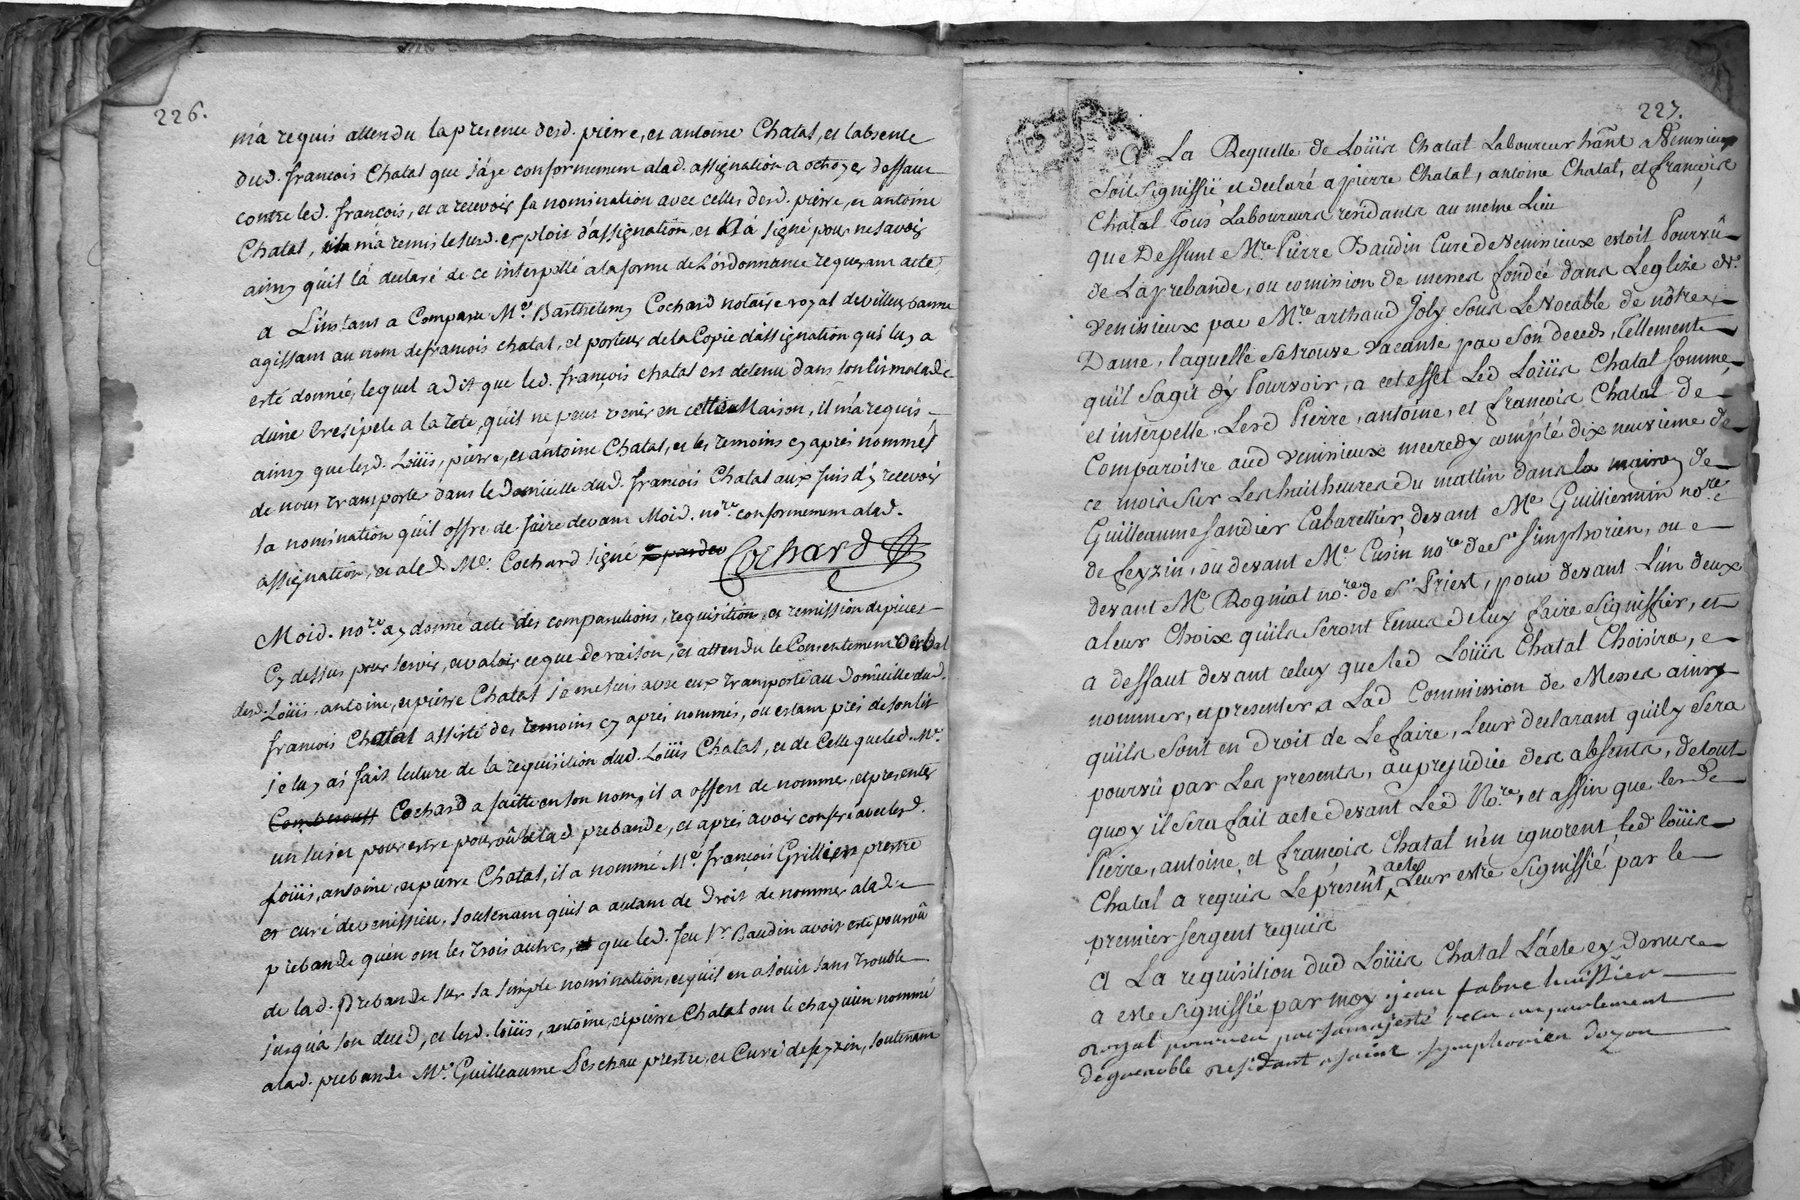 226.
m'a requis attendu la presence desd. pierre, et antoine Chatal, et l'absence
dud. francois Chatal que j'aye conformement alad. assignation a octroyer deffaut
contre led. françois, et a recevoir sa nomination avec celles desd. pierre, et antoine
Chatal, m'a remis le susd. exploit d'assignation, et n'a signé pour ne savoir
ainsy qu'il l'a declaré de ce interpellé a la forme de L'ordonnance requerant acte,
a L'instant a Comparu Me. Barthelemy Cochard notaire royal de villeurbanne
agissant au nom de francois chatal, et porteur de la Copie d'assignation qui luy a
esté donnée, lequel a dit que led. françois chatal est detenu dans son lit malade
d'une Eresipele a la tete, quil ne peut venir en cette Maison, il m'a requis
ainsy que lesd. Loüis, pierre, et antoine Chatal, et les temoins cy apres nommés
de nous transporter dans le Domicille dud. francois Chatal aux fins d'y recevoir
la nomination qu'il offre de faire devant Moid. nore. conformement alad.
assignation, et a led. Me. Cochard signé Cochard
Moid. nore. ay donné acte des comparutions, requisition, et remission de pieces
Cy dessus pour servir, et valoir ce que de raison, et attendu le Consentement verbal
desd. Loüis, antoine, et pierre Chatal je me suis avec eux transporté au Domicille dud.
francois Chatal assisté des temoins cy apres nommés, ou estant pres de son lit
je luy ai fait lecture de la requisition dud. Loüis Chatal, et de Celle que led. Me.
Cochard a faitte en son nom, il a offert de nommer, et presenter
un sujet pour estre pourvû de lad. prebande, et apres avoir conferé avec lesd.
Loüis, antoine, et pierre Chatal, il a nommé Me. françois Grillien prestre
et curé de venissieu, soutenant qu'il a autant de Droit de nommer alad.
prebande qu'en ont les trois autres, que led. feu Sr. Baudin avoit esté pourvû
de lad. Prebande sur sa simple nomination, et qu'il en a jouit sans trouble
jusqu'a son deced, et lesd. Loüis, antoine, et pierre Chatal ont le chaquun nommé
alad. prebande Me. Guilleaume prestre, et Curé de feyzin, soutenant
227.
A La Requette de Loüis Chatal Laboureur hant a Venissieux
Soit signiffié et declaré a pierre Chatal, antoine Chatal, et françois
Chatal Tous Laboureurs residants au meme Lieu
que Deffunt Mre Pierre Baudin Curé de Venissieux estoit Pourvû
de La prebande, ou comission de messes fondée dans Leglise de
venissieux par Mre. arthaud Joly sous Le Vocable de nôtre
Dame, laquelle se trouve vacante par son deceds, Tellement
qu'il s'agit d'y Pourvoir, a cet effet Led Loüis Chatal somme,
et interpelle Lesd Pierre, antoine, et françois Chatal de
Comparoitre aud venissieux mecredy compté dix neuvieme de
ce mois sur Les huit heures du mattin dans la maison de
Guilleaume Sandier Cabarettier, devant Me Guilliermin nore.
de feyzin, ou devant Me Cusin nore de St Simphorien, ou
devant Me Rogniat nore. de St Priest, pour devant L'un deux
a leur Choix qu'ils seront Tenus de luy faire signiffier, et
a deffaut devant celuy que led Loüis Chatal Choisira,
nommer, et presenter a Lad Commission de Messes ainsy
qu'ils sont en Droit de Le faire, Leur declarant qu'il y sera
pourvû par Les presents, au prejudice des absents, de tout
quoy il sera fait acte devant Led Nore, et affin que lesd
Pierre, antoine, et françois Chatal n'en ignorent, led loüis
Chatal a requis Le present acte Leur estre signiffié par le
premier sergent requis
A La requisition dud Loüis Chatal L'acte cy dessus
a este signiffié par moy jean fabre huissier
royal pourveu par sa majesté receu au parlement
de grenoble residant a saint symphorien dozon